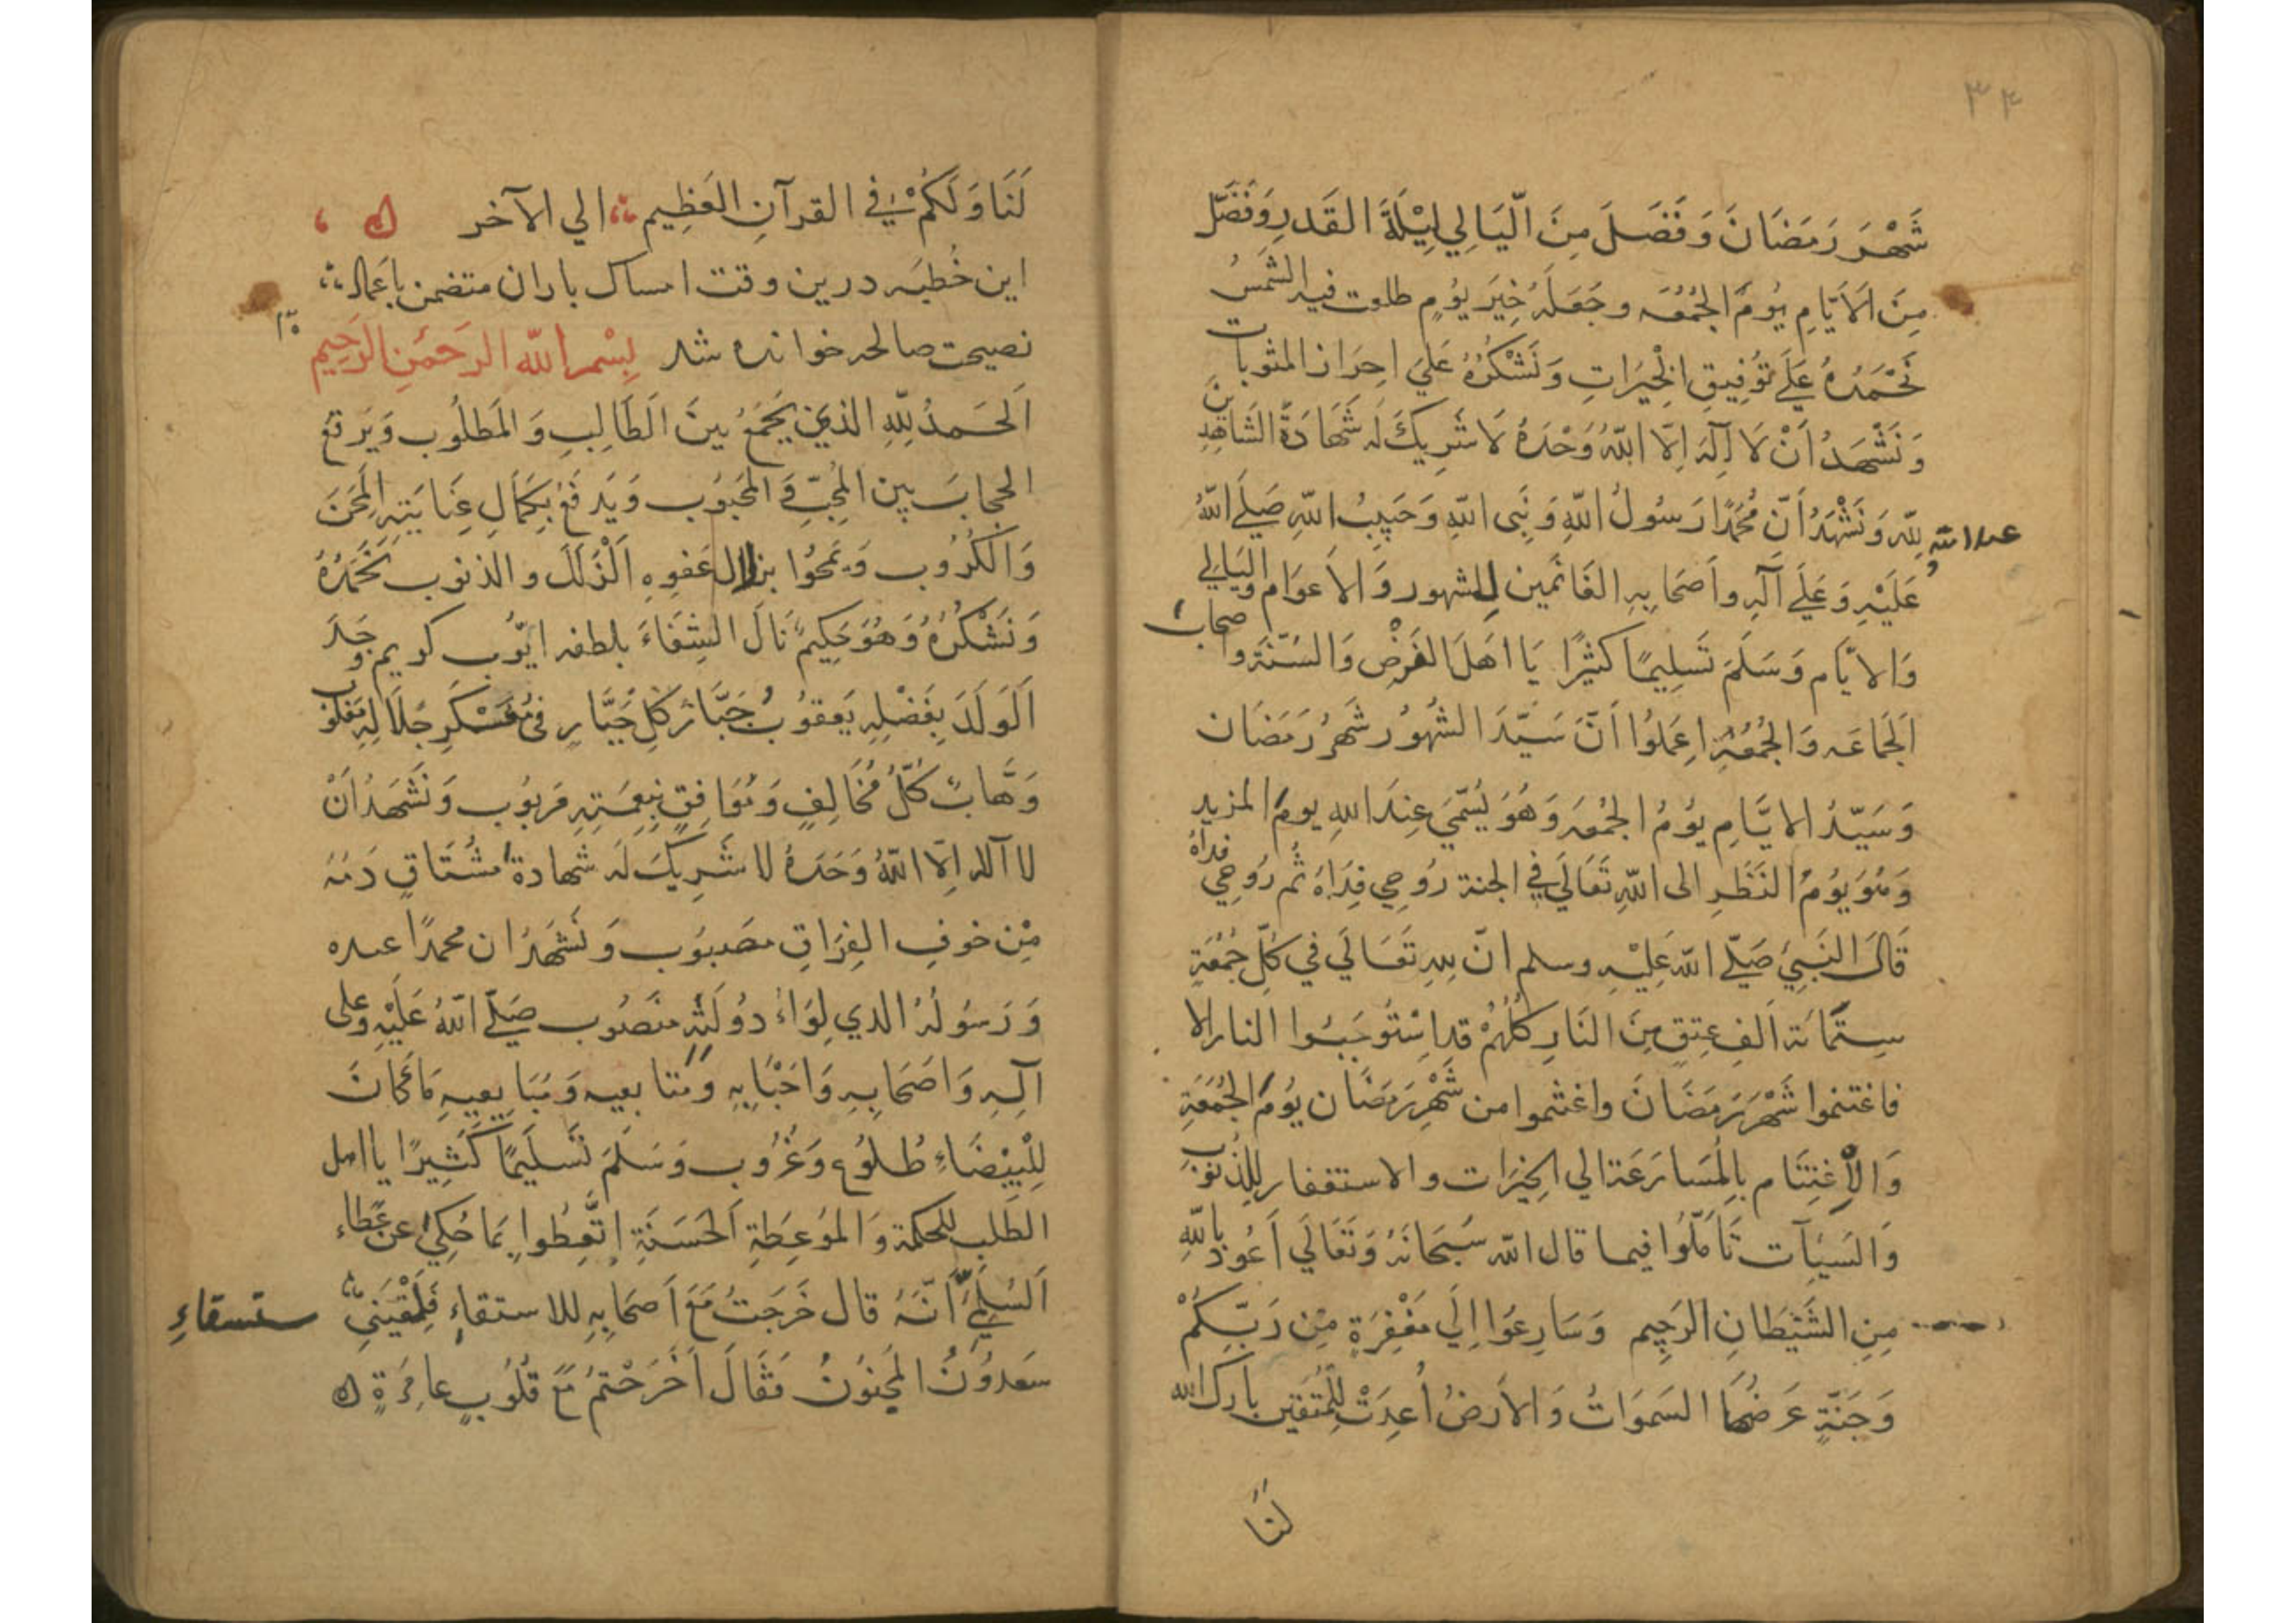 ٣٤
شَهْرَ رَمَضَانَ وَفَضَلَ مِنَ الَّيَالِي لَيْلَةَ القَدرِ وَفَضَّلَ
مِنَ الاَيَّامِ يَوُمَ الجُمُعَه وجَعَلَهُ خَيَر يَوُمٍ طلعت فيه الشَمسُ
نَحْمَدُهُ عَلَي تَوُفِيقِ الخَيرَاتِ وَنَشْكُرُهُ عَليَ احِرَاز المثوبات
وَنَشْهَدُ اَنْ لَا اِلٓهَ اِلَّا اللّٰهُ وَحْدَهُ لَا شَرِيكَ لَه شَهَادَةَ الشَاهِدِينَ
لِلّٰه وَنَشْهَدُ اَنّ مُحَمَّدًا رَسُولُ اللّٰهِ وَنَبِى اللّٰهِ وَحَبِيبُ اللّٰهِ صَلَي اللّٰهُ
عباد الله
عَلَيْهِ وَعَلَي آلِهِ واَصَحَابِهِ القَائمين للشهور وَالاَعوَام واليَالِي
وَالايَّام وَسَلَمَ تَسلِيمًا كثيرًا يَا اهَلَ الفَرضِ وَالسُنَّة واصحاب
الَجَمَاعَه وَالجُمُعُةِ اِعَلمُوا اَنَّ سَيّدَ الشُهُوُر شَهرُ رَمَضَان
وَسَيّدُ الايَّامِ يوُمُ الجُمُعَه وَهُوَ يُسَمّيَ عِندَ اللهِ يومَ المزيد
وَهُوَ يوُمُ النَظَرِ الى اللّٰهِ تَعَالَي فِي الجنة رُوحِي فِدَاهُ ثُم رُوحِي فداهُ
قَالَ النَبِيَ صَلّي اللّٰه عَلَيْهِ وسلم انّ لِلهِ تَعَالَي في كُلِّ جُمُعَةٍ
سِتمَّائة اَلفِ عِتقٍ مِنَ النَارِ كُلُهُمْ قد اسْتَوُجَبُوا النار الا
فاغتنموا شَهْرَ رَمَضَانَ واغتنموا من شَهْرِ رَمَضَان يوُمَ الجُمُعَةِ
وَالاِغتِنَام بِالمُسَارَعَة الي الخَيرَات والاستغفار لِلذنوُب
وَالسَيِآت تَاَمَلّوُا فيما قال اللّٰه سُبحَانَهُ وَتَعَالَي اَعُوذ بِاللّٰهِ
مِنِ الشَيْطَانِ الرَجِيِم وَسَارِعُوَا اِلَي مَغْفِرَةٍ مِن رَبّكِمُْ
وَجَنّةٍ عَرضُهَا السَموَاتُ وَالاَرضُ اُعِدَتْ لِلمُتَقِينَ بارك الله
لَنَا
لَنَا وَلَكُمْ فِي القرآنِ العَظِيم الي الآخر
اين خُطبَه درين وقت امساك باران متضمن باعمال
نصيحت صالحه خوانده شد بِسْمِ اللّٰه الرحَمٰنِ الرَحِيِم
اَلحَمدُ لِلّٰهِ الذي يَجمَعُ بينَ الَطَالِبِ وَالمَطلُوب وَيَرفَعُ
الحِجابَ بين المُحِبّ وَالمَحَبُوب وَيَدفَعُ بِكَمَالِ عِنَايَتِهِ المِحَنَ
وَالكُرُوب وَيَمحُوا بزلال عَفوِهِ اَلْزَلَلَ والذنوب نَحَمدُهُ
وَنَشْكُرُهُ وَهُوَ حَكِيمٌ نَالَ الشِفَاءَ بلطفه ايّوُب كريم وَجَدَ
اَلَوَلَدَ بِفَضلِهِ يَعقوُبُ جَبَّار كُلِ جَبَّارٍ فىُ عَسْكَرِ جَلَالِهِ مَغلوُب
وَهَّابٌ كُلُّ مُخَالِفٍ وَمُوَافِقٍ بِنِعمَتِهِ مَربوُب وَنَشَهدُ اَنْ
لا آله اِلَّا اللّٰهُ وَحَدَهُ لا شَرِيكَ لَه شهادة مُشتَاقٍ دَمُهُ
مِن خوفِ الفِرَاقِ مصَبوُب وَنَشهَدُ ان محمدًا عبده
وَرَسوُلُهُ الذي لِوَاءُ دوُلَتِهِ منَصوُب صَلّي اللّٰهُ عَلَيْهِ وعلى
آلِهِ وَاصَحَابِهِ وَاحَبْابِهِ وَمُتابعيه وَمُبَايِعيِهِ مَا كَانَ
لِلْبَيْضَاءِ طُلوُع وَغُرُوب وَسَلَمَ تَسلِيَمًا كَثِيرًا يا اهل
الطَلبِ للحكمة وَالموَعِظَةِ الَحَسَنَةِ اِتَّعِظوا بِمَا حُكِيَ عن عَطاء
السُلَمِيِّ اَنَّهُ قال خَرَجَتُ مَعَ اَصحَابِهِ للاستقاءِ فَلَقْيَنِىّ
ستسقاءِ
سَعدوُنُ المَجنوُنُ فقَالَ اَخَرَجْتمُ مَعَ قُلُوبٍ عامِرَةٍ